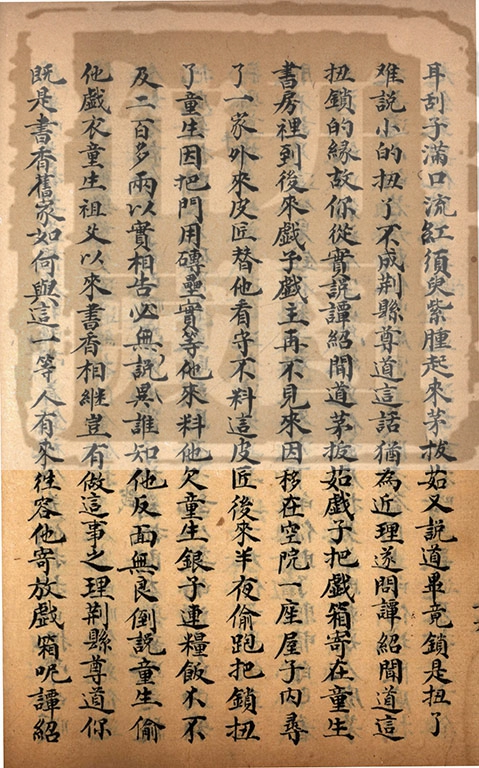 耳刮子滿口流紅須臾紫腫起來茅拔茹又說道畢竟鎖是扭了
难說小的扭了不成荆縣尊道這話猶為近理遂問譚紹聞道這
扭鎖的緣故你從實說譚紹聞道茅拔茹戲子把戲箱寄在童生
書房裡到後來戲子戲主再不見來因移在空院一座屋子内尋
了一家外來皮匠替他看守不料這皮匠後來半夜偷跑把鎖扭
了童生因把門用磚壘實等他來料他欠童生銀子連糧飯不下
及二百多兩以實相告必無說異誰知他反面無良倒說童生偷
他戲衣童生祖父以來書香相継豈有做這事之理荆縣尊道你
既是書香舊家如何與這一等人有來往容他寄放戲箱呢譚紹